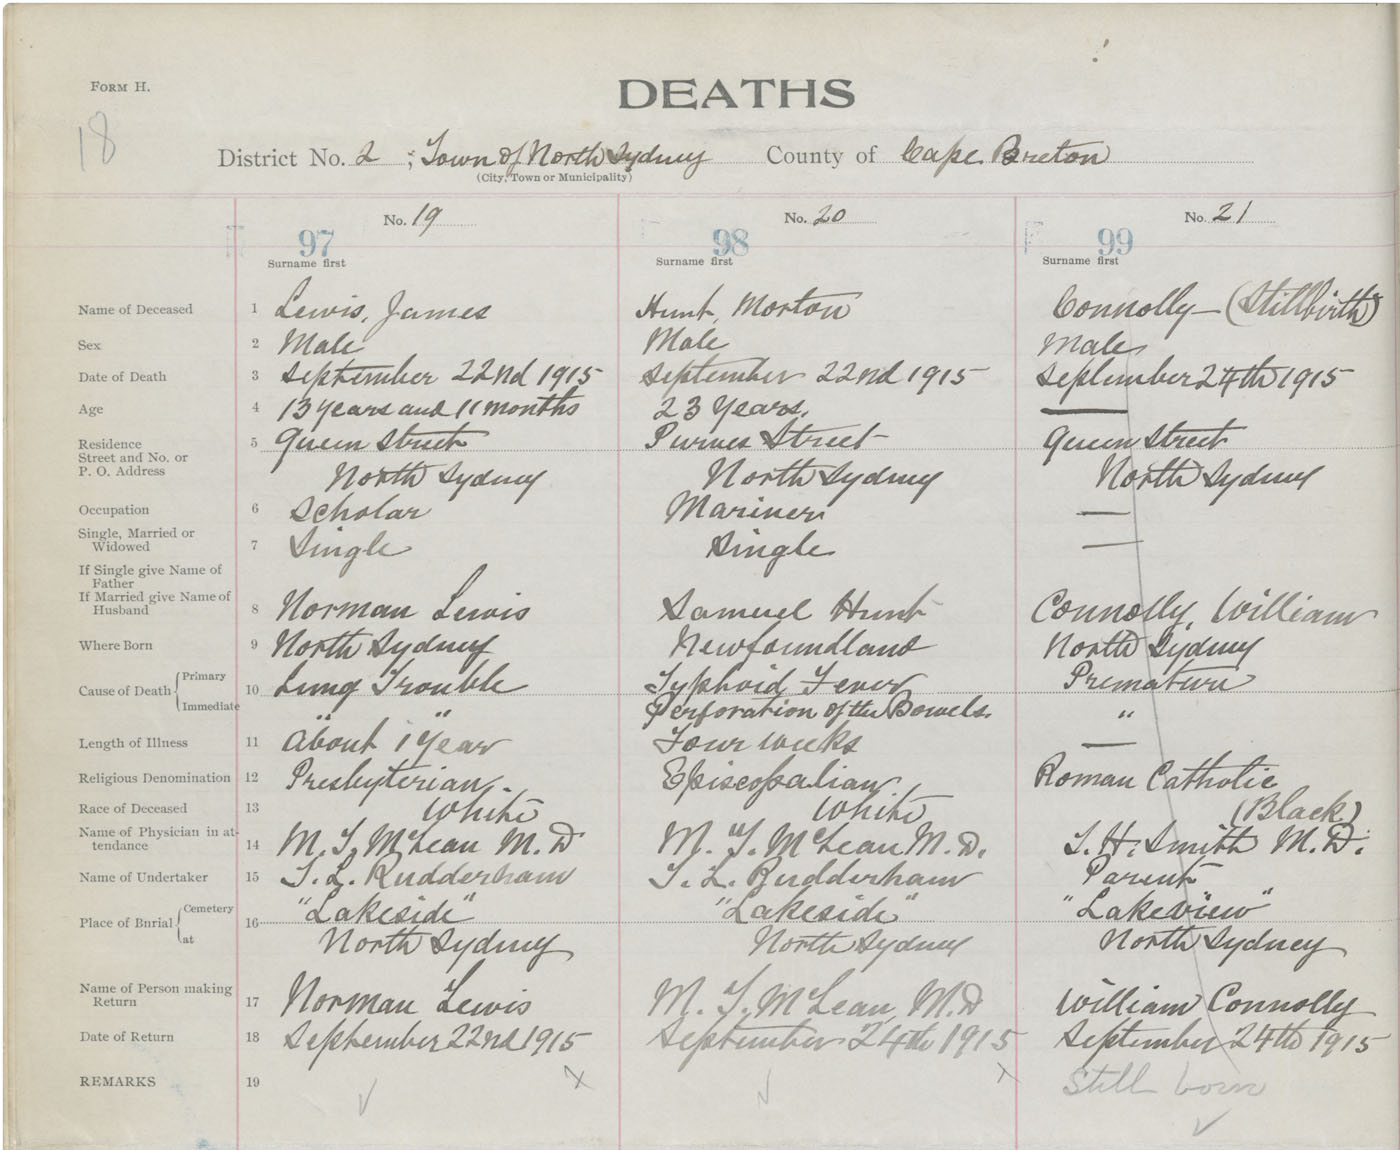 FORM H.
DEATHS
18
District No. 2 ; Town of North Sydney County of Cape Breton
(City, Town or Municipality)
No. 19 No. 20 No. 21
97 98 99
Surname first Surname first Surname first
Name of Deceased 1 Lewis, James Hunt, Morton Connolly — (Stillbirth)
Sex 2 Male Male Male
Date of Death 3 September 22nd 1915 September 22nd 1915 September 24th 1915
Age 4 13 years and 11 months 23 Years. —
Residence 5 Queen Street Purves Street Queen Street
Street and No. or
P. O. Address North Sydney North Sydney North Sydney
Occupation 6 Scholar Mariner —
Single, Married or
Widowed 7 Single Single —
If Single give Name of
Father
If Married give Name of
Husband 8 Norman Lewis Samuel Hunt Connolly, William
Where Born 9 North Sydney Newfoundland North Sydney
Cause of Death { Primary 10 Lung Trouble Typhoid Fever Premature
Immediate " " Perforation of the Bowels. "
Length of Illness 11 About 1 Year Four weeks —
Religious Denomination 12 Presbyterian. Episcopalian Roman Catholic
Race of Deceased 13 White White (Black)
Name of Physician in at-
tendance 14 M. T. McLean M. D M. T. McLean M. D. T. H. Smith M. D.
Name of Undertaker 15 T. L. Rudderham T. L. Rudderham Parent
Place of Burial { Cemetery 16 "Lakeside" "Lakeside" "Lakeview"
at North Sydney North Sydney North Sydney
Name of Person making
Return 17 Norman Lewis M. T. McLean, M. D William Connolly
Date of Return 18 September 22nd 1915 September 24th 1915 September 24th 1915
REMARKS 19 Still born